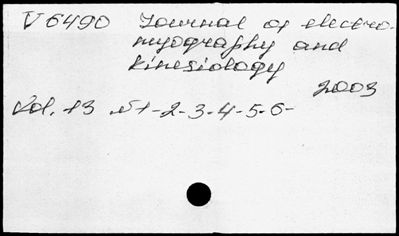 V 6490 Journal of electro-
myography and
kinesiology
2003
Vol. 13 N 1-2-3-4-5-6-